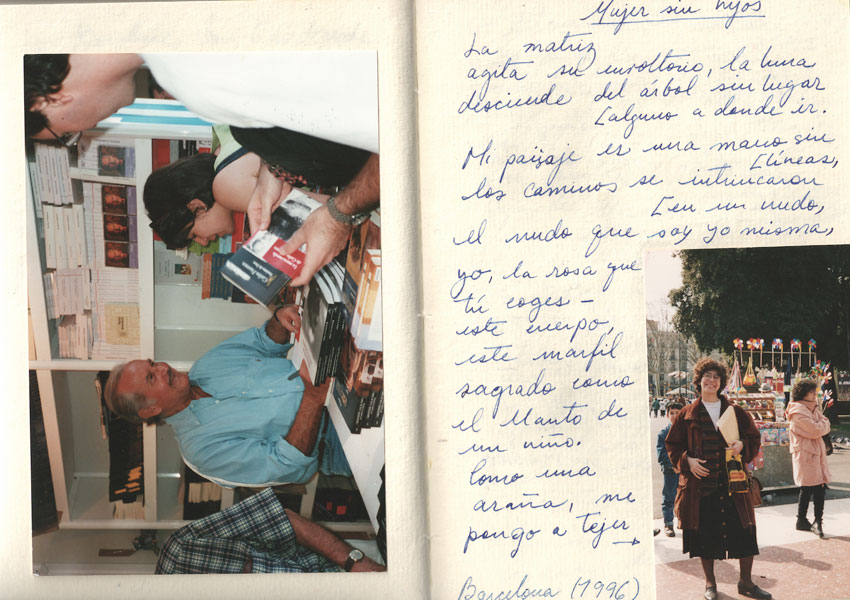 Mujer sin hijos
La matriz
agita su envoltorio, la luna
desciende del árbol sin lugar
[alguno a donde ir.
Mi paisaje es una mano sin
[líneas,
los caminos se intrincaron
[en un nudo,
el nudo que soy yo misma,
yo, la rosa que
tú coges –
este cuerpo,
este marfil
sagrado como
el llanto de
un niño.
Como una
araña, me
pongo a tejer
→
Barcelona (1996)